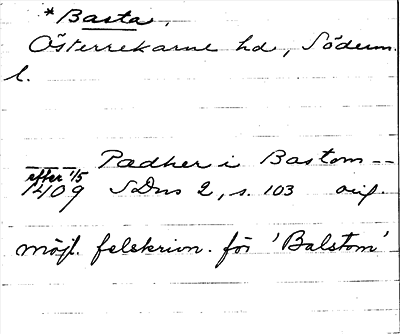 *Basta,
Österrekarne hd, Söderm.
l.
Padher i Bastom --
efter 1/5
1409 SDns 2, s. 103 orig.
möjl. felskrivn. för 'Balstom'